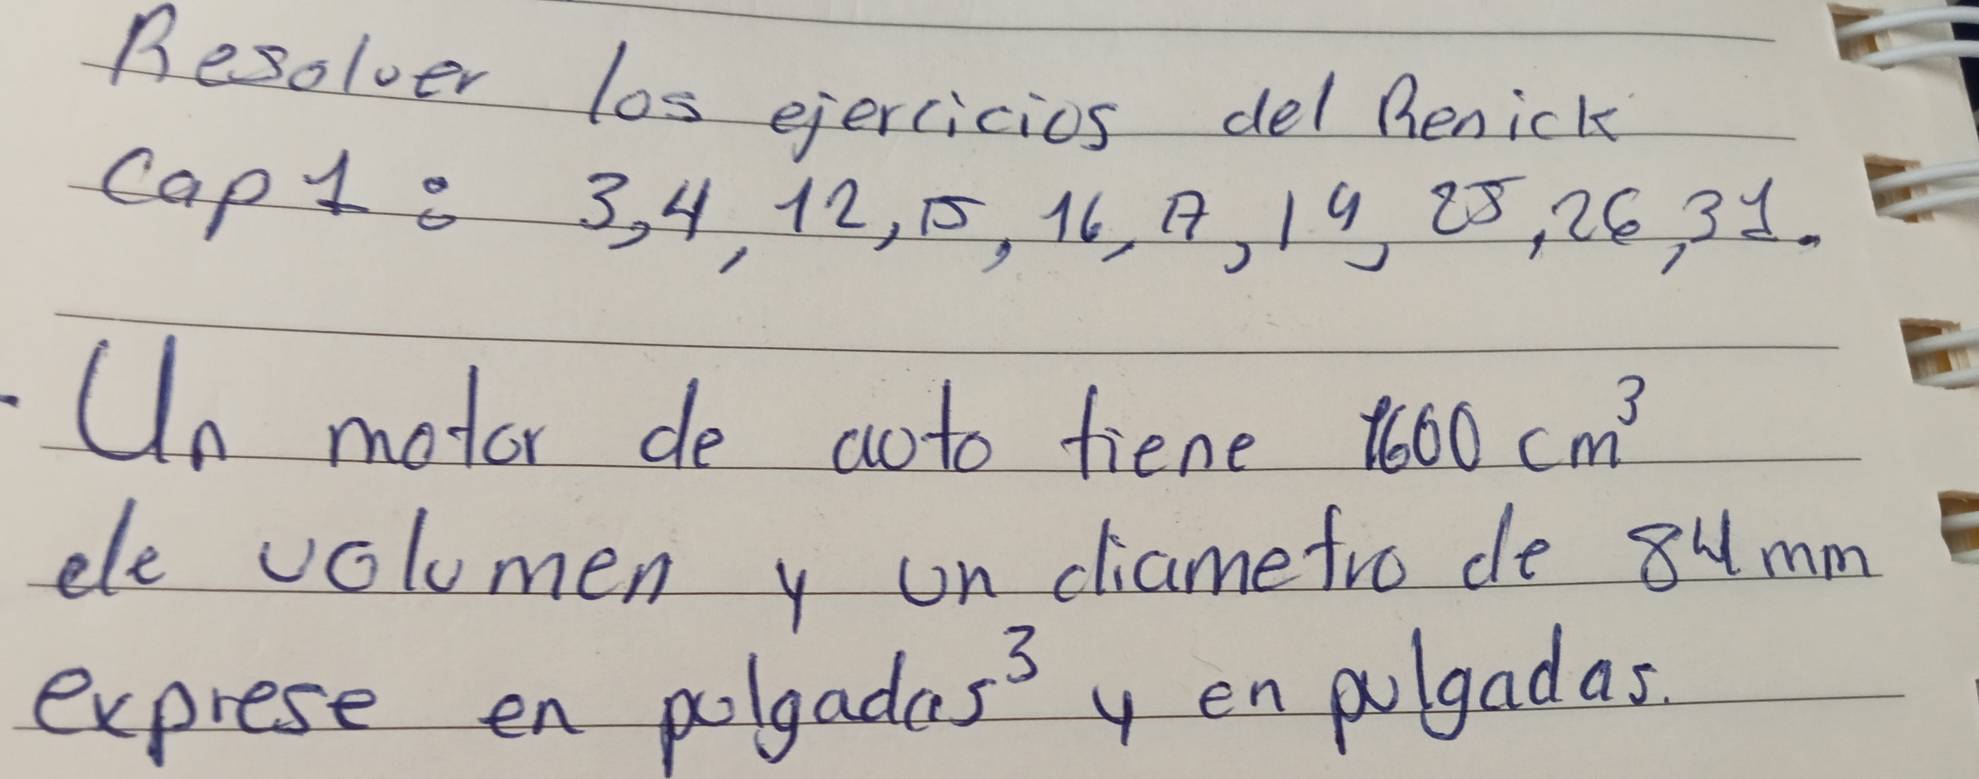 Resolver los ejercicios del Renick
Cap 1: 3,4, 12, 15, 16, 17, 19, 25, 26, 31.
Un motor de auto tiene 1600 cm³
de volumen y un diametro de 84 mm
exprese en pulgadas³ y en pulgadas.